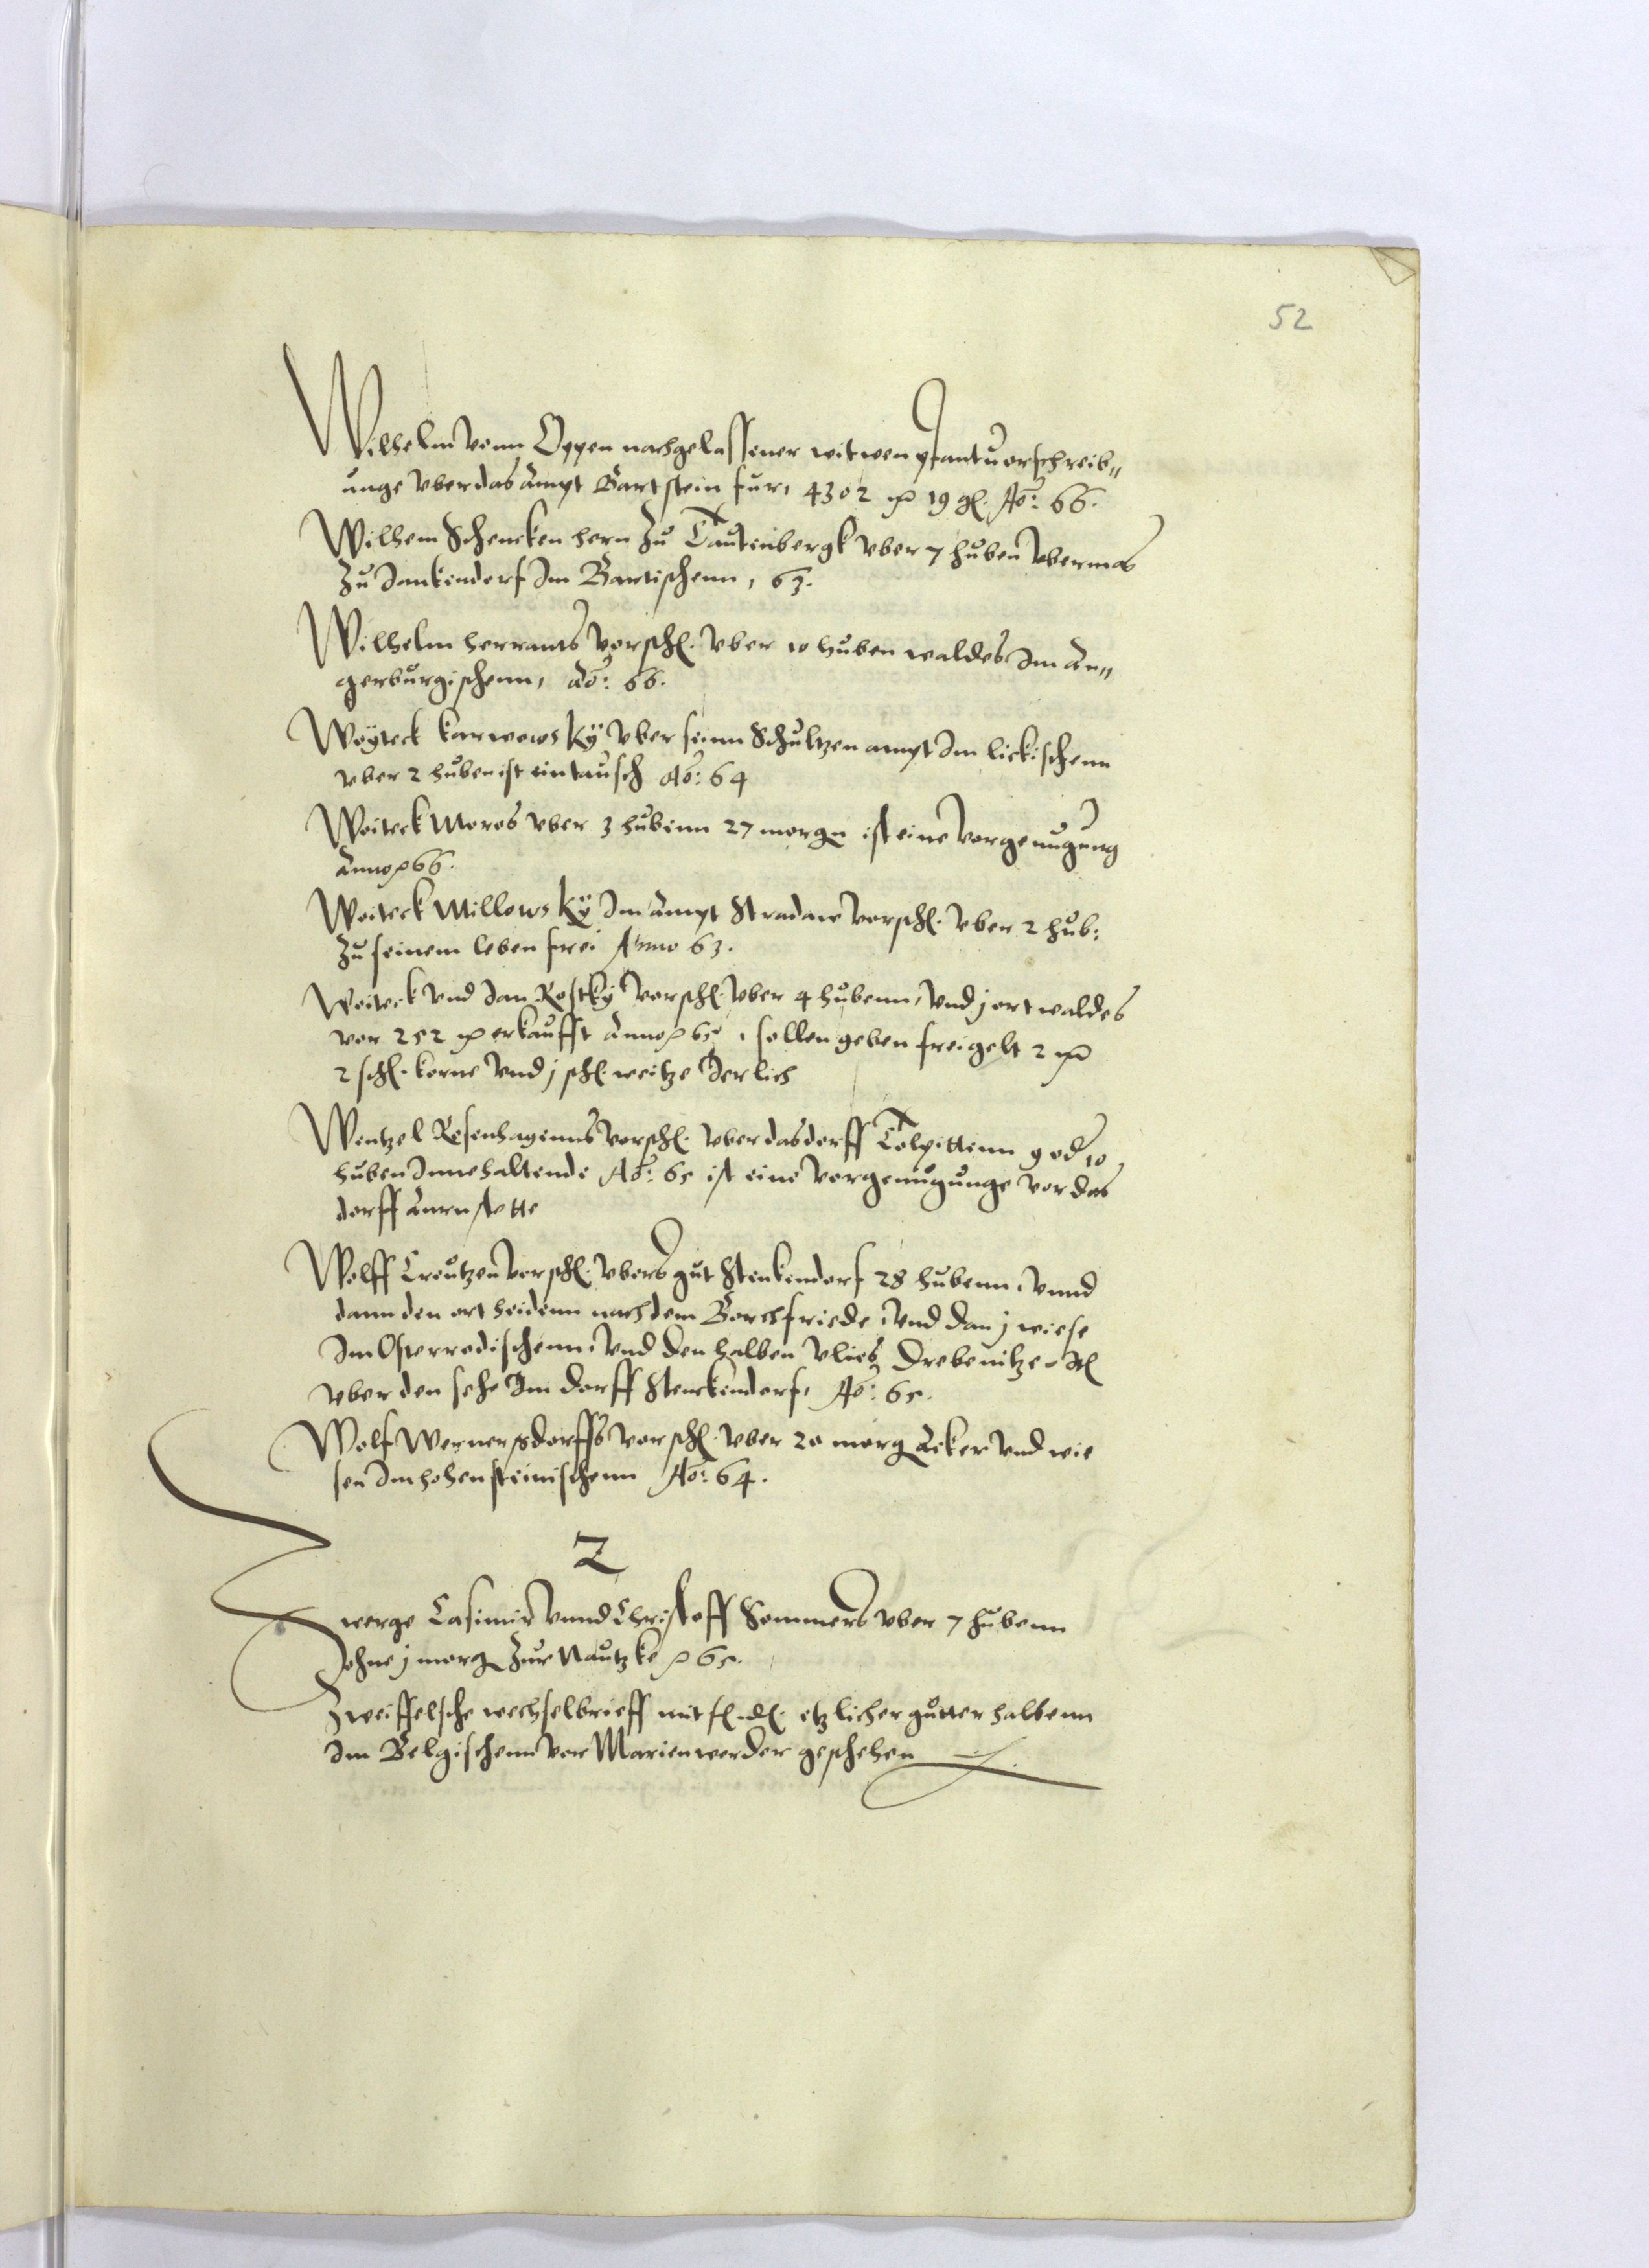 52
Wilhelm vonn Oppen nachgelassener witwen pfantuorschreib„
unge vber das ampt Bartstein fur, 4302 mr 19 gl. Ao: 66.
Wilhem Schencken hern zu Tautenbergk vber 7 huben vbermas
zu Jankendorf Im Bartischenn, 63.
Wilhelm herrants vorschl. vber 10 huben waldes Im An„
gerburgischenn, Ao: 66.
Woyteck Karwowsky vber seinn Schultzen ampt Im lickischenn
vber 2 huben ist ein tausch Ao: 64
Woiteck Moros vber 3 hubenn 27 morgn ist eine vorgenugung
Anno 66.
Woiteck Millowsky Im Ampt Stradaw vorschl. vber 2 hub:
zu seinem leben frei Anno 63.
Woiteck vnd Jan Rostky vorschl. vber 4 hubenn, vnd j ort waldes
vor 252 mr erkaufft Anno 65, sollen geben freigelt 2 mr
2 schl. korne vnd j schl. weitze Jerlich
Wentzel Rosenhagenns vorschl. vber das dorff Tolpittenn 9 od 10
huben Innehaltende Ao: 65 ist eine vorgenugunge vor das
dorff Arnstette
Wolff Creutzen vorschl. vbers gut Stenkendorf 28 hubenn, vnnd
dann den ort heidenn nach dem Borchfriede, vnd dan j wiese
Im Osterrodischenn, vnd den halben vlies Drebenitze
vber den sehe Im dorff Stenckendorf, Ao: 65.
Wolf Wernersdorffs vorschl. vber 20 morg Acker vnd wie
sen Im hohensteinischenn Ao: 64.
Z
Zwerge Casimir vnnd Christoff Sommers vber 7 hubenn
ohne j morg zur Nautzke 65.
Zweiffelsche wechselbrieff mit etzlicher gutter halbenn
Im Belgischenn vor Marienwerder geschehen